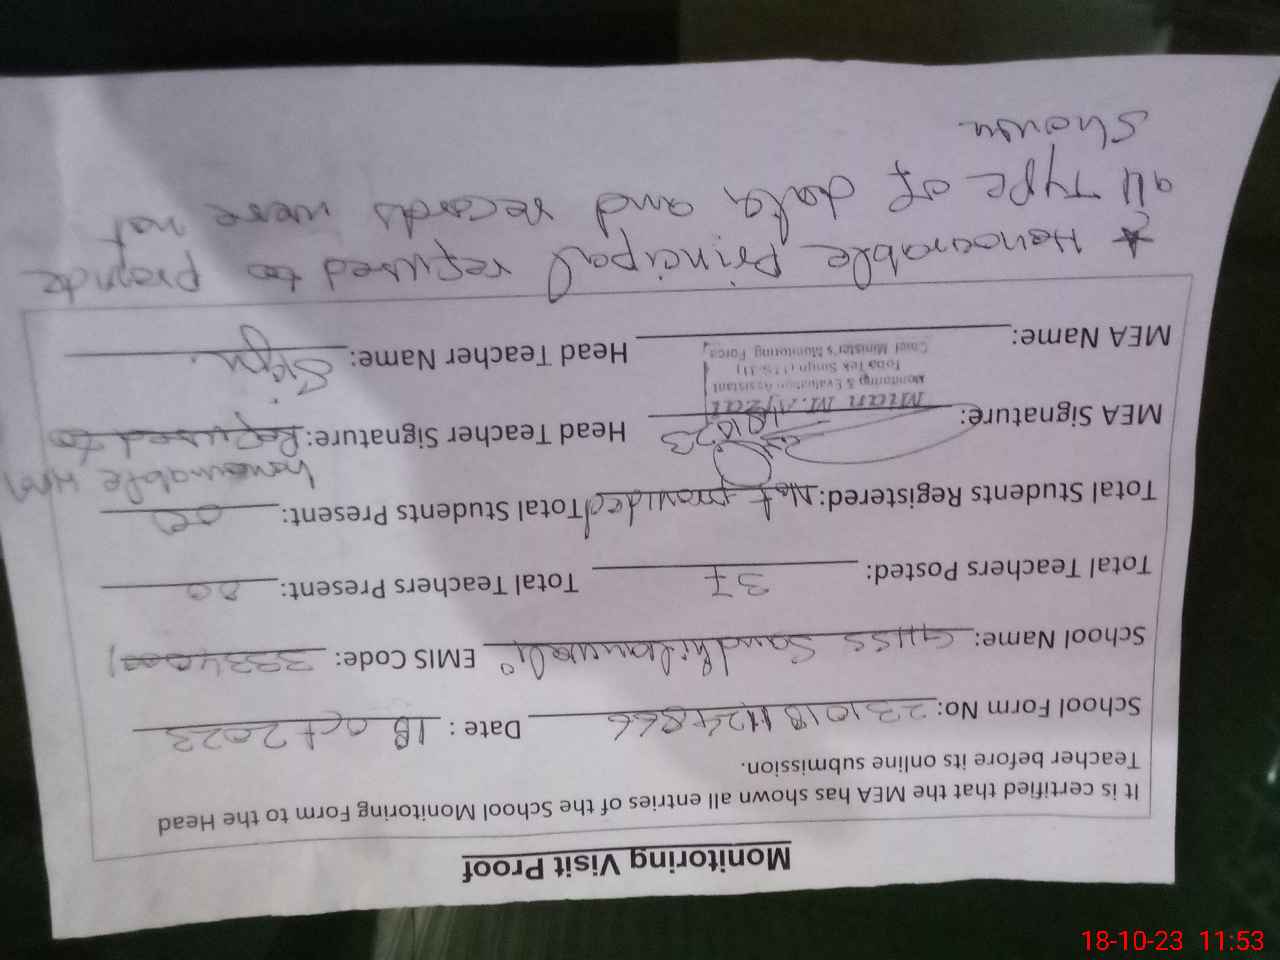 Monitoring Visit Proof
It is certified that the MEA has shown all entries of the School Monitoring Form to the Head
Teacher before its online submission.
School Form No: 231018 Date: 18 oct 2023
School Name: GHSS Sandhilianwali EMIS Code:
Total Teachers Posted: 37 Total Teachers Present: 00
Total Students Registered: Not provided Total Students Present: 00
honourable HM
MEA Signature: Head Teacher Signature: Refused to
18 10 23
Mian M. Afzal
Monitoring & Evaluation Assistant
Toba Tek Singh
Chief Minister's Monitoring Force
MEA Name: Head Teacher Name: Sign.
* Honourable principal refused to provide
all Type of data and records were not
shown
18-10-23 11:53